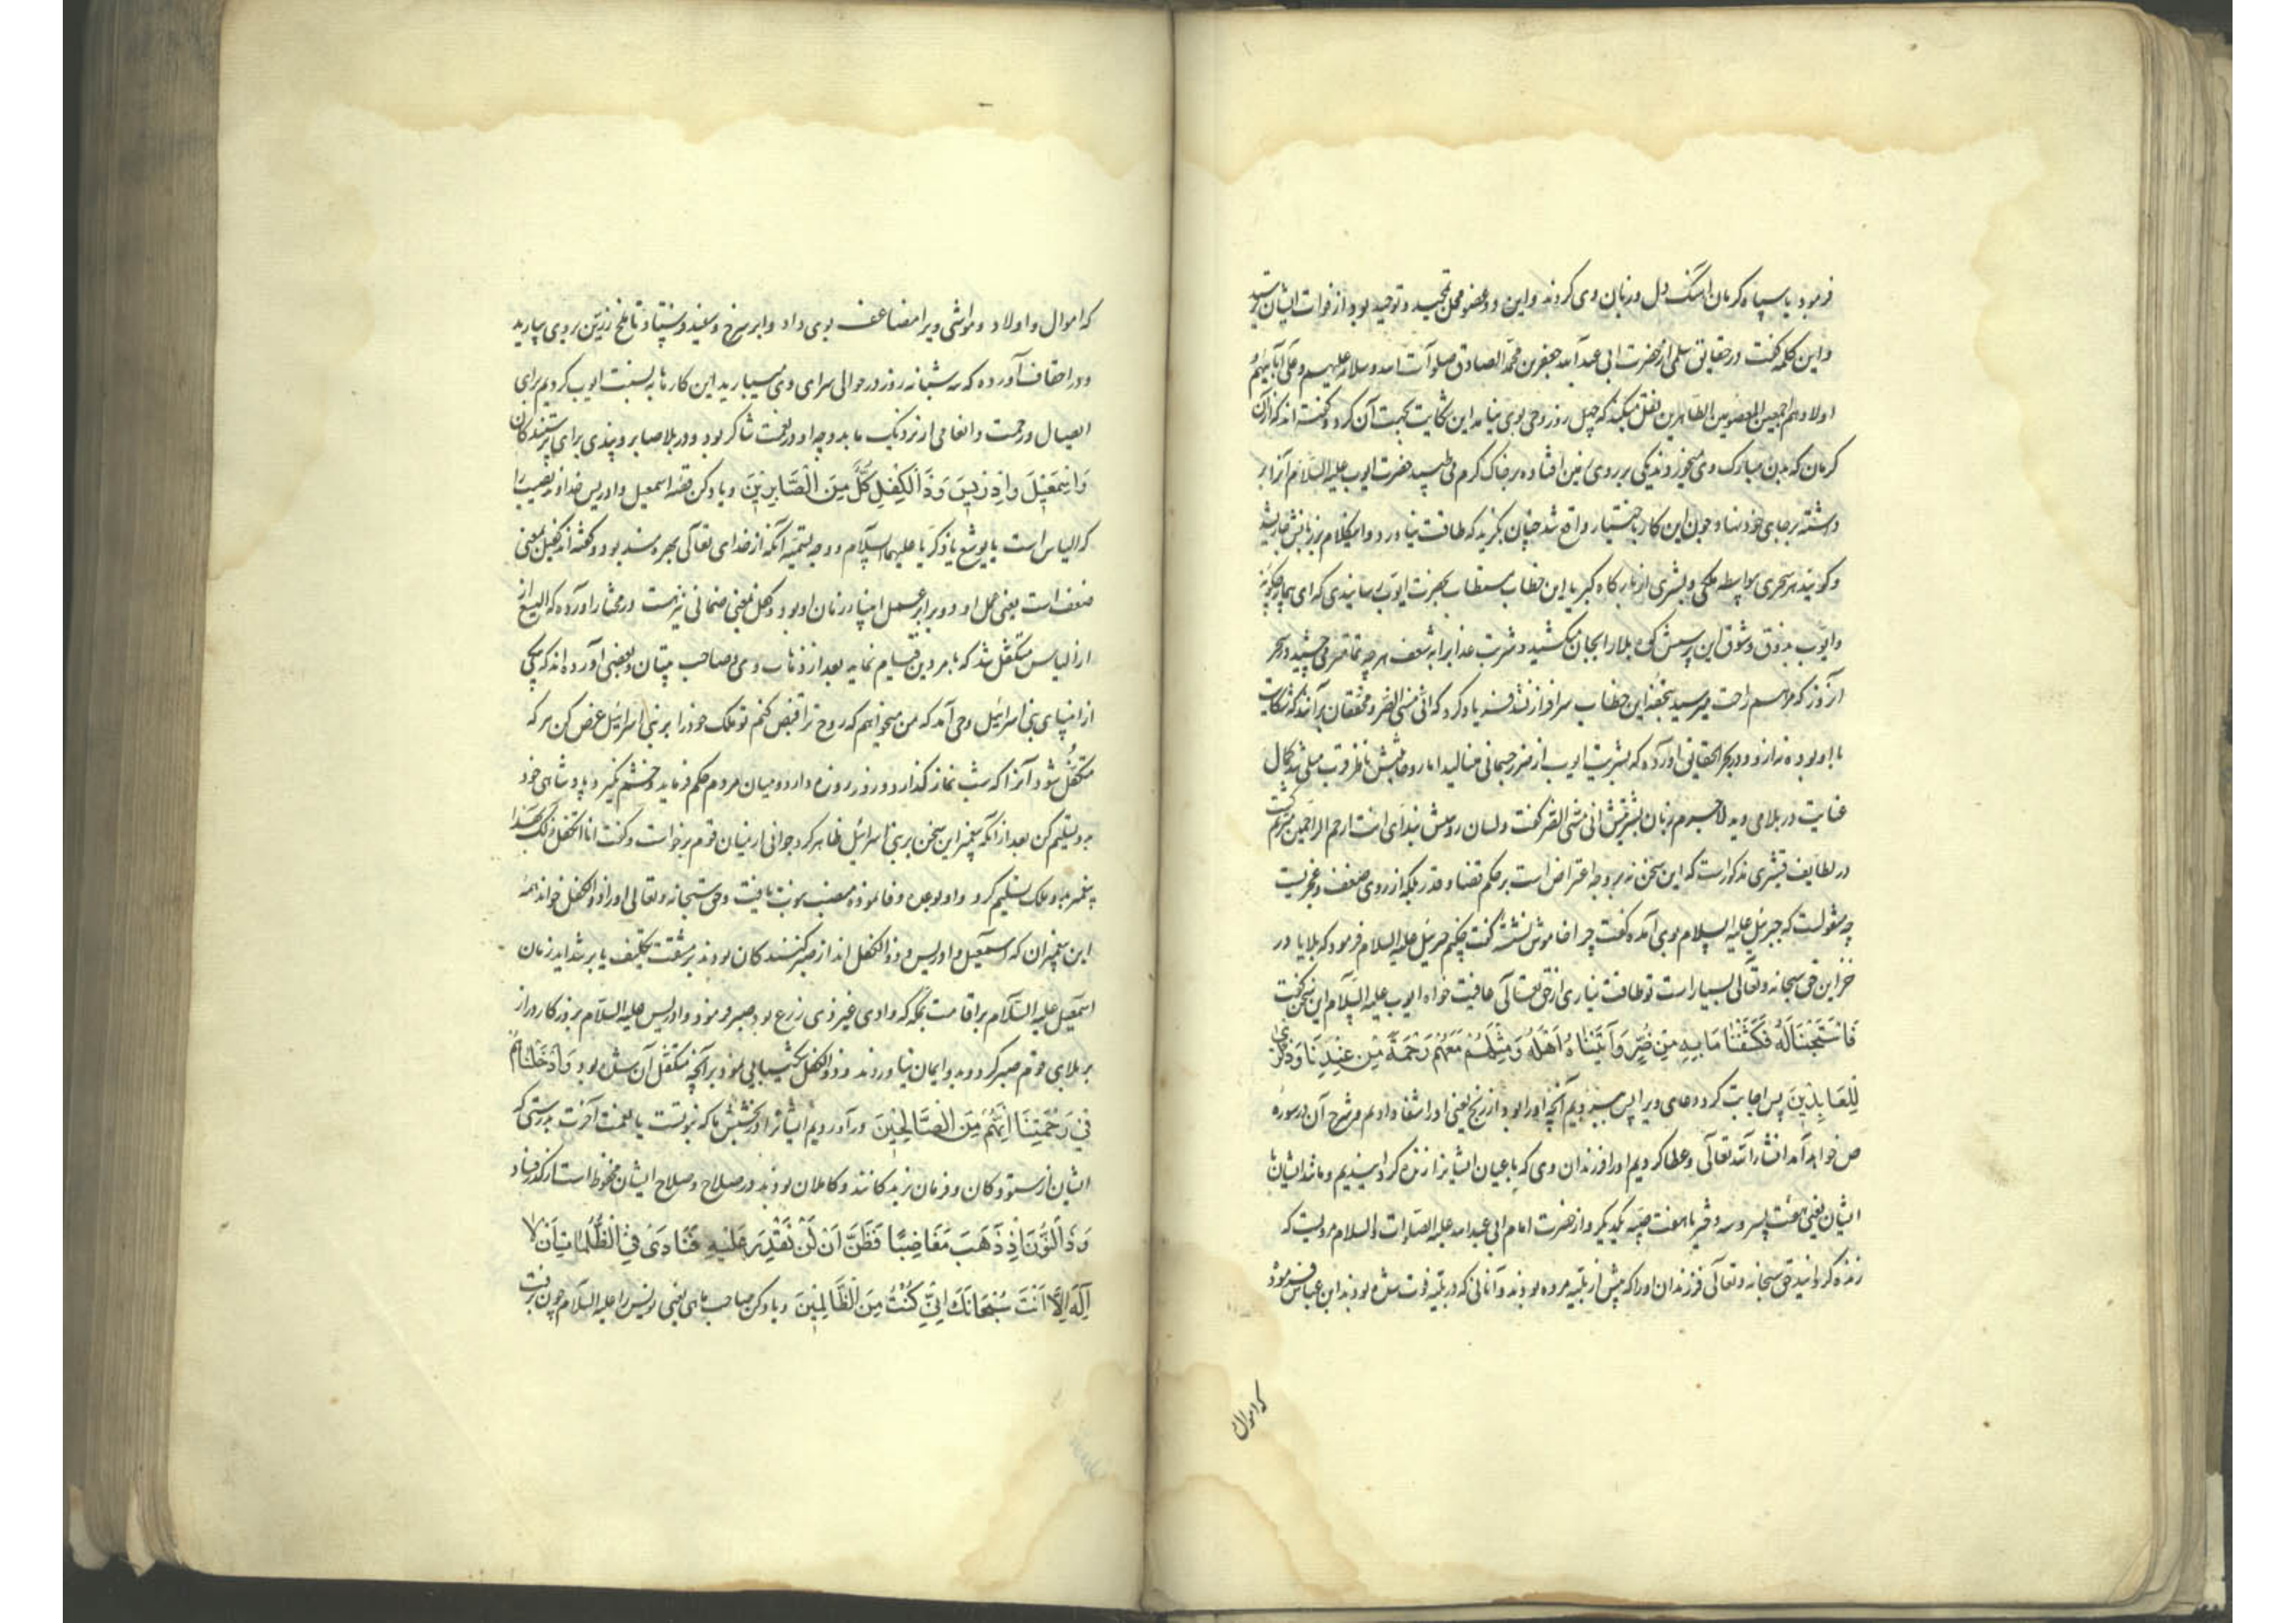 فرمود یا سپاه کرمان اهنگ دل و زبان وی کردند و این دو عضو محل تمجید و توحید بود از فوات ایشان بترسید
و این کلمه گفت و در حقایق سلمی از حضرت ابی عبدالله جعفر بن محمد الصادق صلوات الله و سلامه علیهم و علی آبائهم و
اولادهم اجمعین المعصومین الطاهرین نقل میکند که چهل روز وحی بوی نیامد این شکایت بجهت آن کرد و گفته اند که از آن
کرمان که بدن مبارک وی میخوردند یکی بر روی زمین افتاده بر خاک گرم می طپید حضرت ایوب علیه السلام آنرا بر
داشته بر جای خود نهاد و چون این کار باختیار واقع شد چنان بگزید که طاقت نیاورد و این کلام بر زبانش جاری شد
و گویند هر سحری بواسطه ملکی و بشری از بارگاه کبریا این خطاب مستطاب بحضرت ایوب رسانیدی که ای بیمار چگونه
و ایوب بذوق و شوق این پرسش کوه بلا را بجان میکشید و شربت عذابرا بشعف هر چه تمامتر می چشید و سحر
آن روز که مراسم راحت میرسید بتحفه این خطاب سرافراز نشد فریاد کرد که انی مسنی الضر و محققان برآنند که شکایت
با او بوده نه از و و در بحر الحقایق آورده که بشریت ایوب از ضرر جسمانی مینالید اما روحانیتش ناظر قرب مبلی شده کمال
عنایت در بلا می دید لاجرم زبان بشریتش انی مسنی الضر گفت و لسان روحش بندای انت ارحم الراحمین مترنم گشت
در لطایف قشیری مذکورست که این سخن نه بر وجه اعتراض است بر حکم قضا و قدر بلکه از روی ضعف و عجزیت
چه منقولست که جبرئیل علیه السلام بوی آمده گفت چرا خاموش نشسته گفت چکنم جبرئیل علیه السلام فرمود که بلایا در
خزاین حق سبحانه و تعالی بسیار است تو طاقت نیاری از حق تعالی عافیت خواه ایوب علیه السلام این سخن گفت
فَاسْتَجَبْنَا لَهُ فَكَشَفْنَا مَا بِهِ مِنْ ضُرٍّ وَآتَيْنَاهُ أَهْلَهُ وَمِثْلَهُمْ مَعَهُمْ رَحْمَةً مِنْ عِنْدِنَا وَذِكْرَى
لِلْعَابِدِينَ پس اجابت کردیم دعای ویرا پس ببردیم آنچه او را بود از رنج یعنی او را شفا دادیم و شرح آن در سوره
ص خواهد آمد انشاء الله تعالی و عطا کردیم او را فرزندان وی که باعیان ایشانرا زنده گردانیدیم و مانند ایشان با
ایشان یعنی هفت پسر و سه دختر یا هفت صبیه دیگر و از حضرت امام ابی عبدالله علیه الصلوات والسلام مرویست که
زنده گردانید حق سبحانه و تعالی فرزندان او را که پیش از بلیه مرده بودند و آنانی که در بلیه فوت شده بودند ابن عباس فرمود
که اموال
که اموال و اولاد و مواشی ویرا مضاعف بوی داد و ابر سرخ و سفید فرستاد تا ملخ زرین بر وی بارید
و در احقاف آورده که سه شبانه روز در حوالی سرای وی میبارید این کارها به نسبت ایوب کردیم برای
ایصال رحمت و انعامی از نزدیک ما بدو چه او در نعمت شاکر بود و در بلا صابر و پندی برای پرستندگان
وَإِسْمَعِيلَ وَإِدْرِيسَ وَذَا الْكِفْلِ كُلٌّ مِنَ الصَّابِرِينَ و یاد کن قصه اسمعیل و ادریس خداوند نصیب را
که الیاس است یا یوشع یا زکریا علیهما السلام و وجه تسمیه آنکه از خدای تعالی بهره مند بود و گفته اند کفل بمعنی
ضعف است یعنی عمل او دو برابر عمل انبیاء زمان او بود و کفل بمعنی ضمانی نیز هست در مختار آورده که الیسع از
از الیاس متکفل شد که بامر دین قیام نماید بعد از ذهاب وی و صاحب تبیان و بعضی آورده اند که یکی
از انبیای بنی اسرائیل وحی آمد که من میخواهم که روح ترا قبض کنم تو ملک خود را بر بنی اسرائیل عرض کن هر که
متکفل شود آنرا که شب نماز گذارد و روز روزه دارد و میان مردم حکم فرماید و خشم نگیرد پادشاهی خود
بدو تسلیم کن بعد از آنکه پیغمبر این سخن بر بنی اسرائیل ظاهر کرد جوانی از میان قوم برخواست و گفت انا اتکفل لک بهذا
پیغمبر بدو ملک تسلیم کرد و او بوعده وفا نموده منصب نبوت یافت و حق سبحانه و تعالی او را ذو الکفل خواند همه
این پیغمبران که اسمعیل و ادریس و ذو الکفل اند از صبر کنندگان بودند بر مشقت تکلیف یا بر شداید زمان
اسمعیل علیه السلام بر اقامت بمکه که وادی غیر ذی زرع بود صبر فرمود و ادریس علیه السلام بروزگار دراز
بر بلای قوم صبر کرد و بدو ایمان نیاوردند و ذو الکفل شکیبایی نمود بر آنچه متکفل آن شده بود وَأَدْخَلْنَاهُمْ
فِي رَحْمَتِنَا إِنَّهُمْ مِنَ الصَّالِحِينَ و درآوردیم ایشانرا در بخشش ما که نبوتست یا نعمت آخرت بدرستی که
ایشان از ستودگان و فرمان بردگانند و کاملان بودند در صلاح و صلاح ایشان محفوظ است از کدر فساد
وَذَا النُّونِ إِذْ ذَهَبَ مُغَاضِبًا فَظَنَّ أَنْ لَنْ نَقْدِرَ عَلَيْهِ فَنَادَى فِي الظُّلُمَاتِ أَنْ لَا
إِلَهَ إِلَّا أَنْتَ سُبْحَانَكَ إِنِّي كُنْتُ مِنَ الظَّالِمِينَ و یاد کن صاحب ماهی یعنی یونس را علیه السلام چون برفت